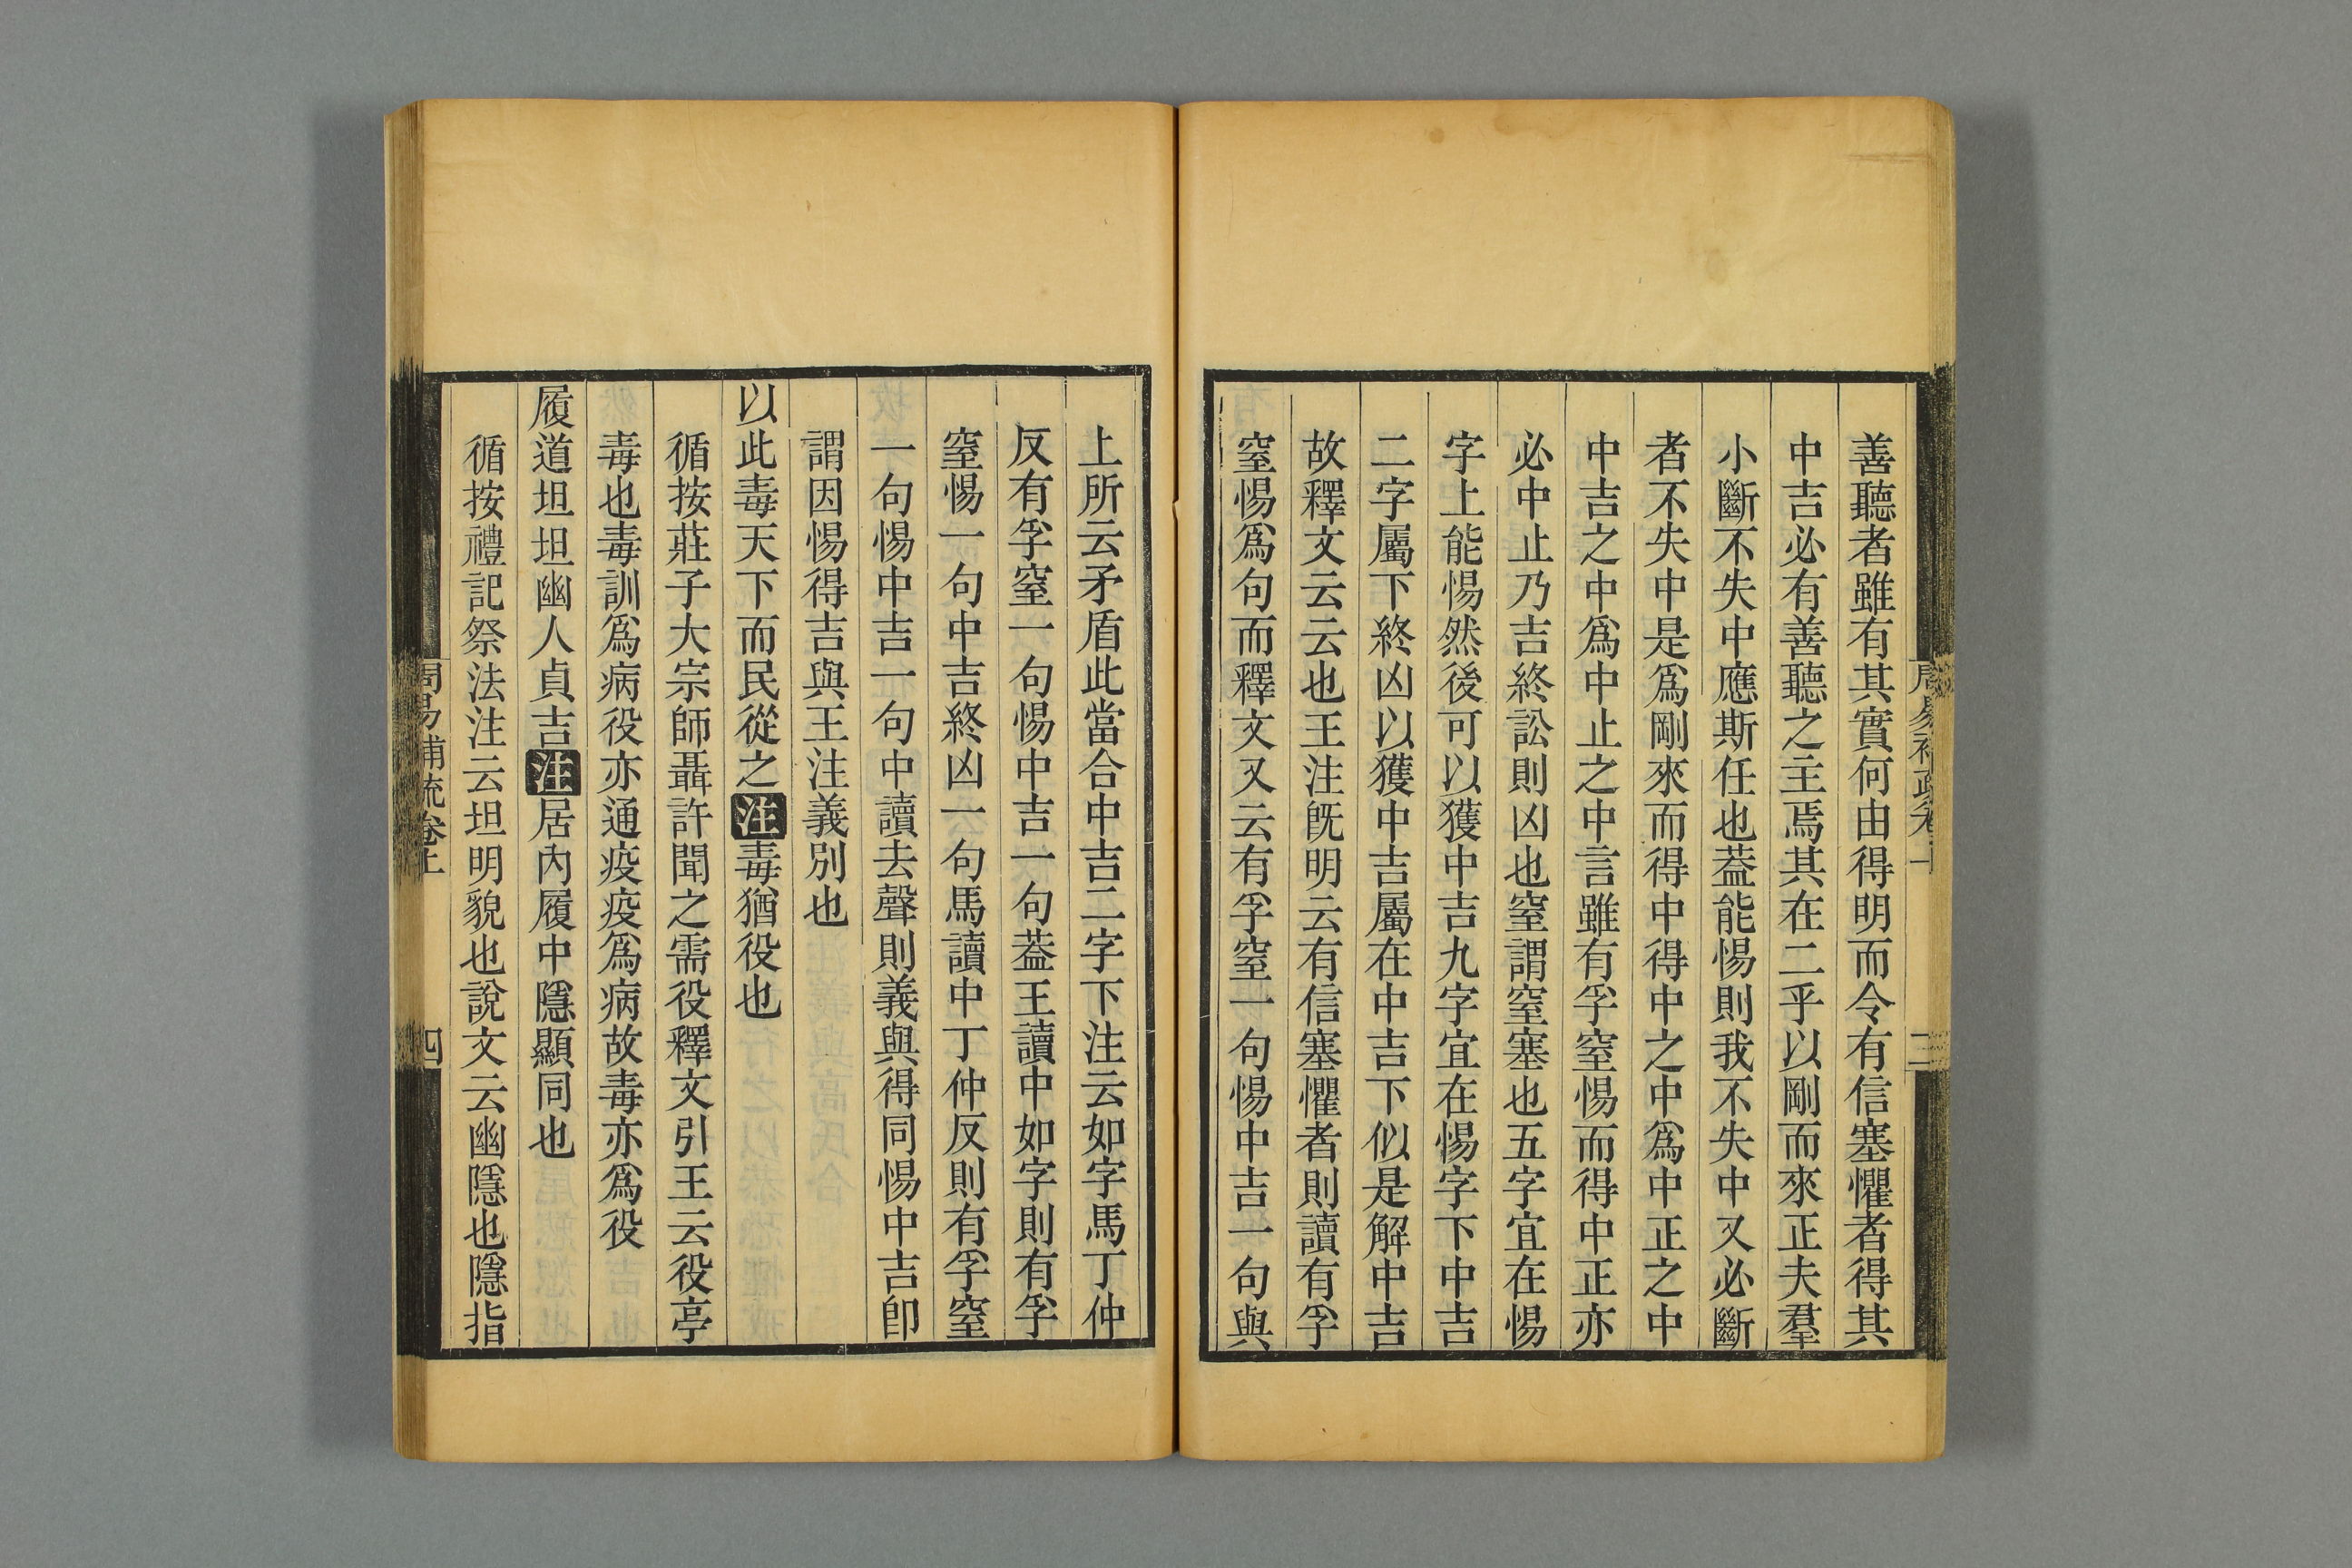 善聽者雖有其實何由得明而令有信塞懼者得其
中吉必有善聽之主焉其在二乎以剛而來正夫羣
小斷不失中應斯任也葢能惕則我不失中又必斷
者不失中是爲剛來而得中得中之中爲中正之中
中吉之中爲中止之中言雖有孚窒惕而得中正亦
必中止乃吉終訟則凶也窒謂窒塞也五字宜在惕
字上能惕然後可以獲中吉九字宜在惕字下中吉
二字屬下終凶以獲中吉屬在中吉下似是解中吉
故釋文云云也王注旣明云有信塞懼者則讀有孚
窒惕爲句而釋文又云有孚窒一句惕中吉一句與
上所云矛盾此當合中吉二字下注云如字馬丁仲
反有孚窒一句惕中吉一句葢王讀中如字則有孚
窒惕一句中吉終凶一句馬讀中丁仲反則有孚窒
一句惕中吉一句中讀去聲則義與得同惕中吉卽
謂因惕得吉與王注義別也
以此毒天下而民從之注毒猶役也
循按莊子大宗師聶許聞之需役釋文引王云役亭
毒也毒訓爲病役亦通疫疫爲病故毒亦爲役
履道坦坦幽人貞吉注居內履中隱顯同也
循按禮記祭法注云坦明貌也說文云幽隱也隱指
周易補疏卷上
四